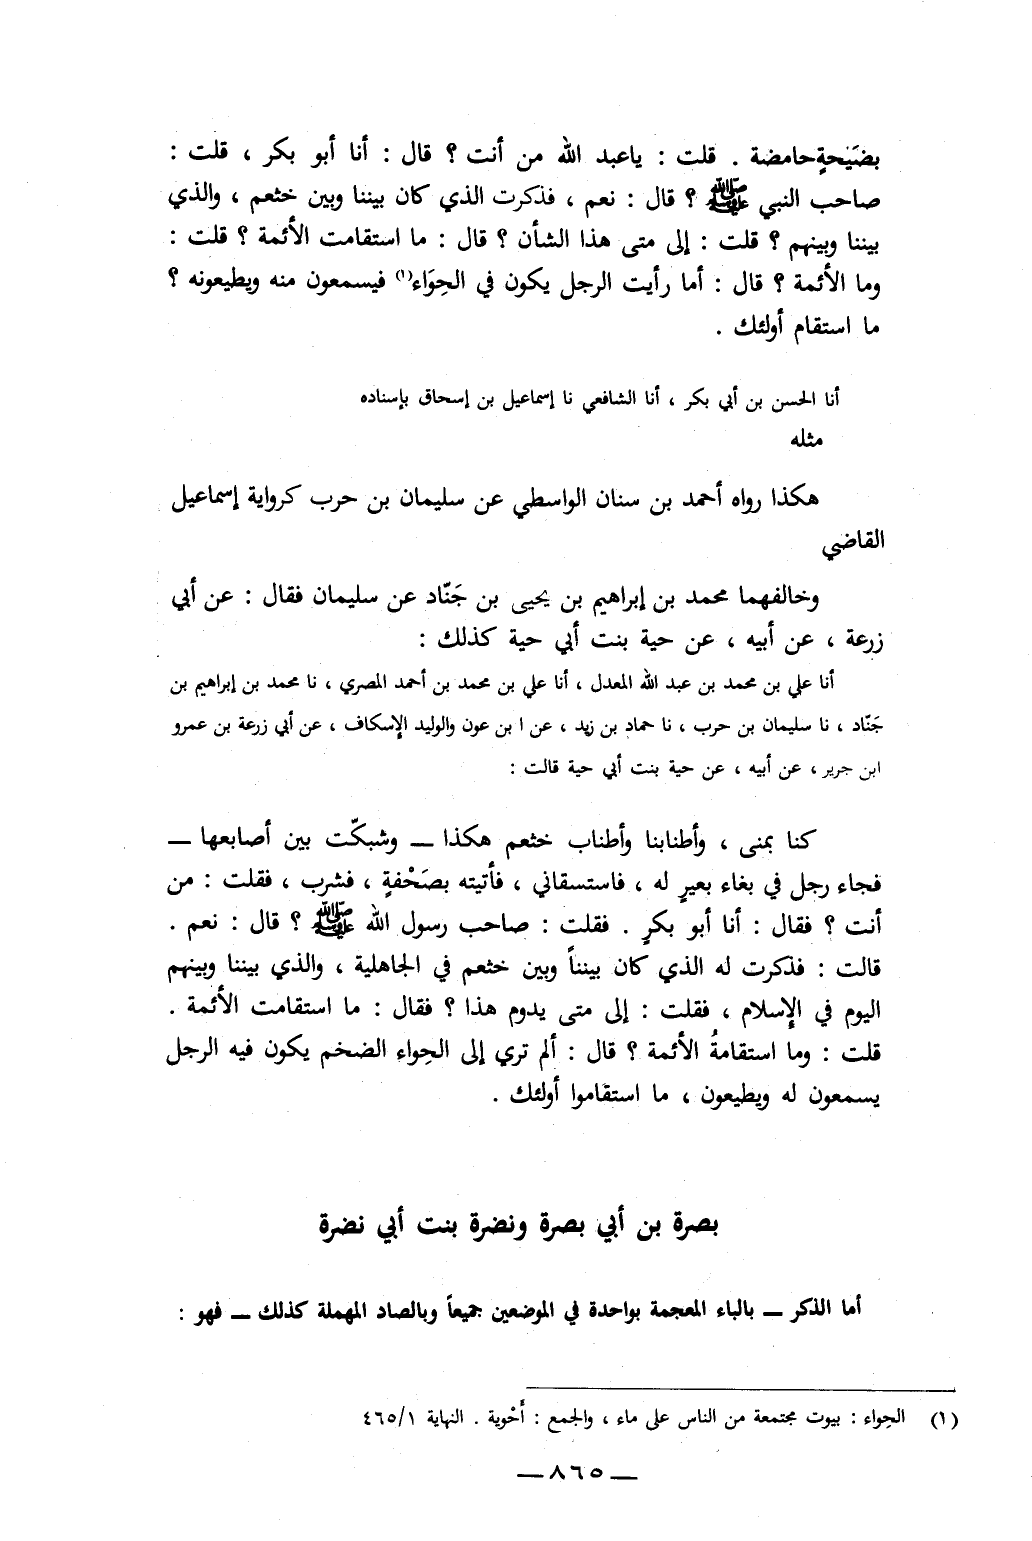 بضَيْحةٍ حامضة . قلت : ياعبد الله من أنت ؟ قال : أنا أبو بكر ، قلت :
صاحب النبي ﷺ ؟ قال : نعم ، فذكرت الذي كان بيننا وبين خثعم ، والذي
بيننا وبينهم ؟ قلت : إلى متى هذا الشأن ؟ قال : ما استقامت الأئمة ؟ قلت :
وما الأئمة ؟ قال : أما رأيت الرجل يكون في الحِوَاء(١) فيسمعون منه ويطيعونه ؟
ما استقام أولئك .
أنا الحسن بن أبي بكر ، أنا الشافعي نا إسماعيل بن إسحاق بإسناده
مثله
هكذا رواه أحمد بن سنان الواسطي عن سليمان بن حرب كرواية إسماعيل
القاضي
وخالفهما محمد بن إبراهيم بن يحيى بن جَنّاد عن سليمان فقال : عن أبي
زرعة ، عن أبيه ، عن حية بنت أبي حية كذلك :
أنا علي بن محمد بن عبد الله المعدل ، أنا علي بن محمد بن أحمد المصري ، نا محمد بن إبراهيم بن
جَنّاد ، نا سليمان بن حرب ، نا حماد بن زيد ، عن ابن عون والوليد الإسكاف ، عن أبي زرعة بن عمرو
ابن جرير ، عن أبيه ، عن حية بنت أبي حية قالت :
كنا بمنى ، وأطنابنا وأطناب خثعم هكذا ــ وشبكّت بين أصابعها ــ
فجاء رجل في بغاء بعيرٍ له ، فاستسقاني ، فأتيته بصَحْفةٍ ، فشرب ، فقلت : من
أنت ؟ فقال : أنا أبو بكرٍ . فقلت : صاحب رسول الله ﷺ ؟ قال : نعم .
قالت : فذكرت له الذي كان بينناً وبين خثعم في الجاهلية ، والذي بيننا وبينهم
اليوم في الإسلام ، فقلت : إلى متى يدوم هذا ؟ فقال : ما استقامت الأئمة .
قلت : وما استقامةُ الأئمة ؟ قال : ألم تري إلى الحِواء الضخم يكون فيه الرجل
يسمعون له ويطيعون ، ما استقاموا أولئك .
بصرة بن أبي بصرة ونضرة بنت أبي نضرة
أما الذكر ــ بالباء المعجمة بواحدة في الموضعين جميعاً وبالصاد المهملة كذلك ــ فهو :
(١) الحِواء : بيوت مجتمعة من الناس على ماء ، والجمع : أَحْوية . النهاية ٤٦٥/١
ــ ٨٦٥ ــ